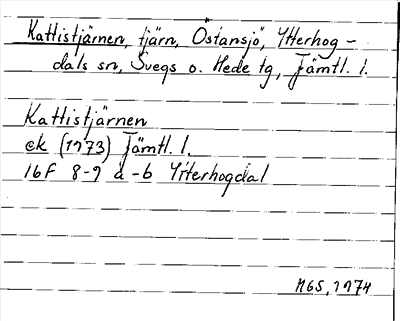 Kattistjärnen, tjärn, Östansjö, Ytterhog-
dals sn, Svegs o. Hede tg, Jämtl. l.
Kattistjärnen
ek (1973) Jämtl. l.
16F 8-9 a-b Ytterhogdal
MGS, 1974